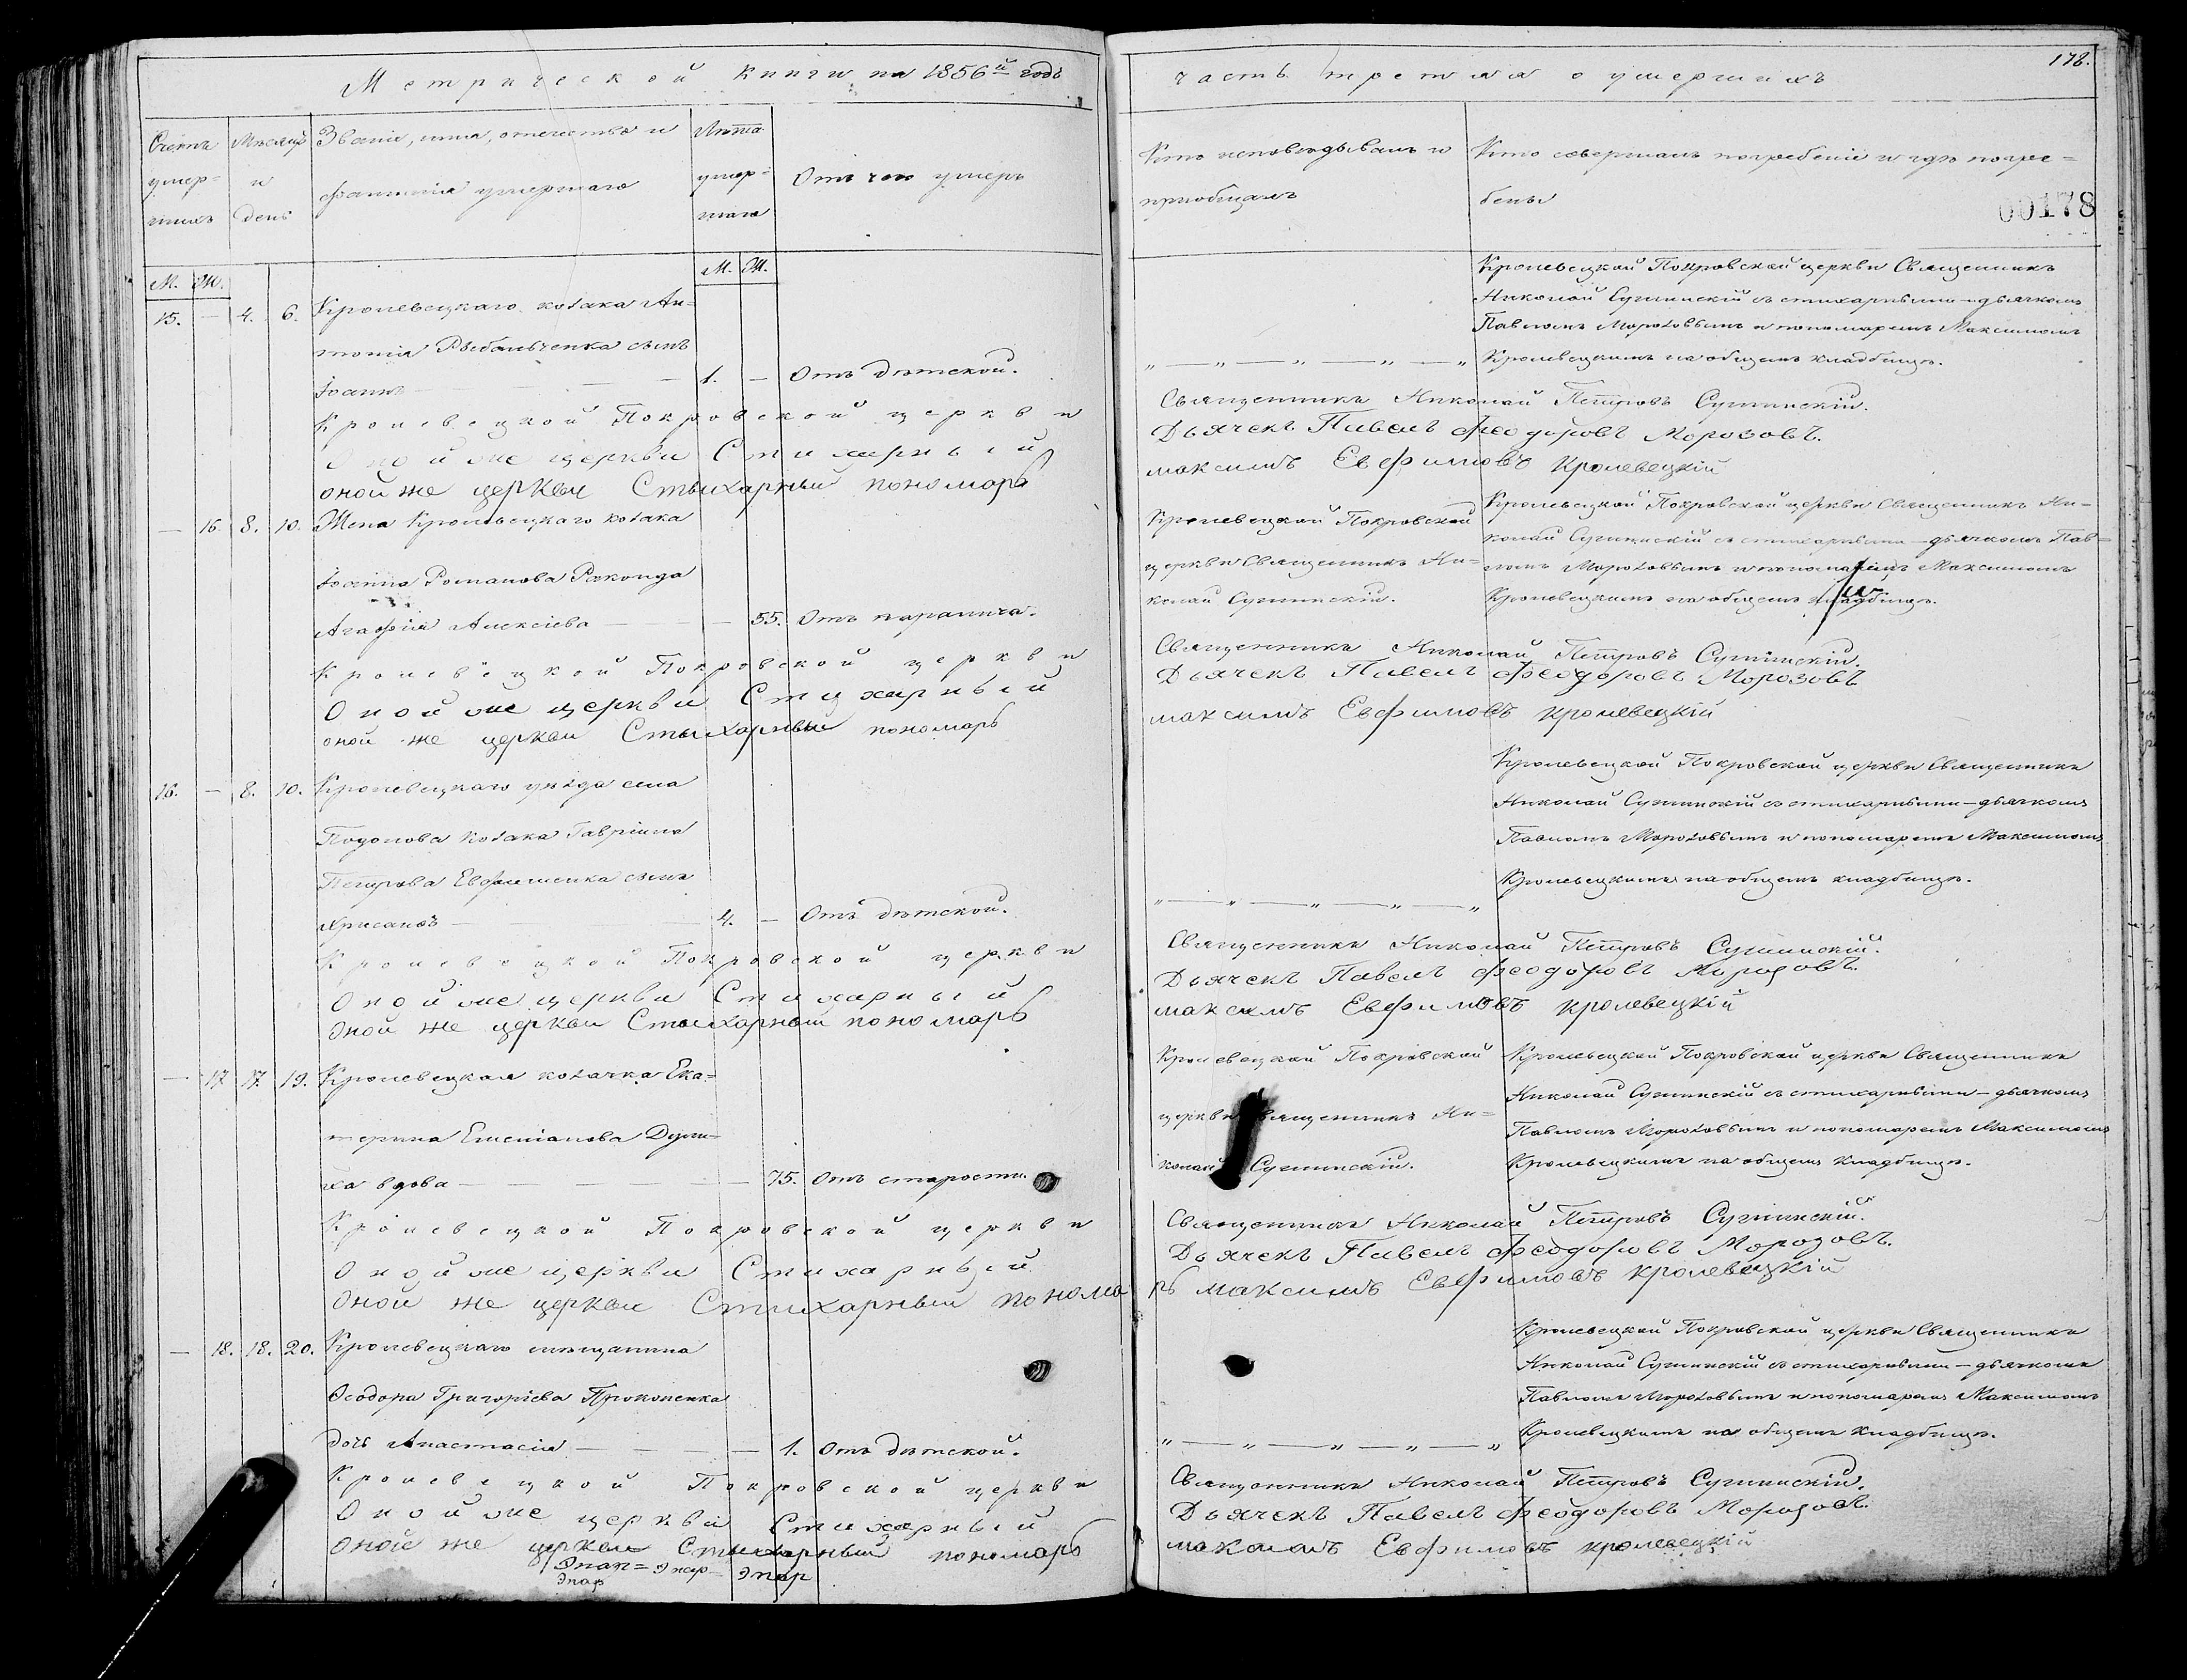 Метрической книги на 1856й годъ
часть третия о умершихъ
178.
Счетъ умер=шихъ
Мѣсяцъ и день
Званіе, имя, отечество и фамилія умершаго
Лѣта умер=шаго
Отъ чего умеръ
Кто исповѣдывалъ и приобщалъ
Кто совершалъ погребеніе и гдѣ погре=бены
00178
М. Ж.
М. Ж.
15. — 4. 6. Кролевецкаго козака Ан=
тонія Рыбальченка сынъ
Іоаннъ — 1. — Отъ дѣтской.
Кролевецкой Покровской церкви Священникъ
Николай Сугинскій съ стихарными – дьячкомъ
Павломъ Морозовымъ и пономаремъ Максимомъ
Кролевецкимъ на общемъ кладбищѣ.
Кролевецкой Покровской церкви Священникъ Николай Петровъ Сугинскій.
Оной же церкви Стихарный Дьячекъ Павелъ Феодоровъ Морозовъ.
оной же церкви Стыхарный пономарь максимъ Евфимовъ Кролевецкій
— 16. 8. 10. Жена Кролевецкаго козака
Іоанна Романова Раконда
Агафія Алексіева — 55. Отъ паралича.
Кролевецкой Покровской
церкви Священникъ Ни=
колай Сугинскій.
Кролевецкой Покровской церкви Священникъ Ни=
колай Сугинскій съ стихарными – дьячкомъ Пав=
ломъ Морозовымъ и пономаремъ Максимомъ
Кролевецкимъ на общемъ кладбищѣ.
Кролевецкой Покровской церкви Священникъ Николай Петровъ Сугинскій.
Оной же церкви Стихарный Дьячекъ Павелъ Феодоровъ Морозовъ
оной же церкви Стыхарный пономарь максимъ Евфимовъ кролевецкій
16. — 8. 10. Кролевецкаго уѣзда села
Подолова козака Гавріила
Петрова Евфименка сынъ
Хрисанѳъ — 4. — Отъ дѣтской.
Кролевецкой Покровской церкви Священникъ
Николай Сугинскій съ стихарными – дьячкомъ
Павломъ Морозовымъ и пономаремъ Максимомъ
Кролевецкимъ на общемъ кладбищѣ.
Кролевецкой Покровской церкви Священникъ Николай Петровъ Сугинскій.
Оной же церкви Стихарный Дьячекъ Павелъ Феодоровъ Морозовъ.
Оной же церкви Стыхарный пономарь максимъ Евфимовъ кролевецкій
— 17. 17. 19. Кролевецкая козачка Ека=
терина Емеліанова
вдова — 75. Отъ старости.
Кролевецкой Покровской
церкви Священникъ Ни=
колай Сугинскій.
Кролевецкой Покровской церкви Священникъ
Николай Сугинскій съ стихарными – дьячкомъ
Павломъ Морозовымъ и пономаремъ Максимомъ
Кролевецкимъ на общемъ кладбищѣ.
Кролевецкой Покровской церкви Священникъ Николай Петровъ Сугинскій.
Оной же церкви Стихарный Дьячекъ Павелъ Феодоровъ Морозовъ.
Оной же церкви Стихарный пономарь максимъ Евфимовъ кролевецкій
— 18. 18. 20. Кролевецкаго мѣщанина
Ѳеодора Григоріева Прокопенка
дочь Анастасія — 1. Отъ дѣтской.
Кролевецкой Покровской церкви Священникъ
Николай Сугинскій съ стихарными – дьячкомъ
Павломъ Морозовымъ и пономаремъ Максимомъ
Кролевецкимъ на общемъ кладбищѣ.
Кролевецкой Покровской церкви Священникъ Николай Петровъ Сугинскій.
Оной же церкви Стихарный Дьячекъ Павелъ Феодоровъ Морозовъ.
Оной же церкви Стыхарный пономарь максимъ Евфимовъ кролевецкій